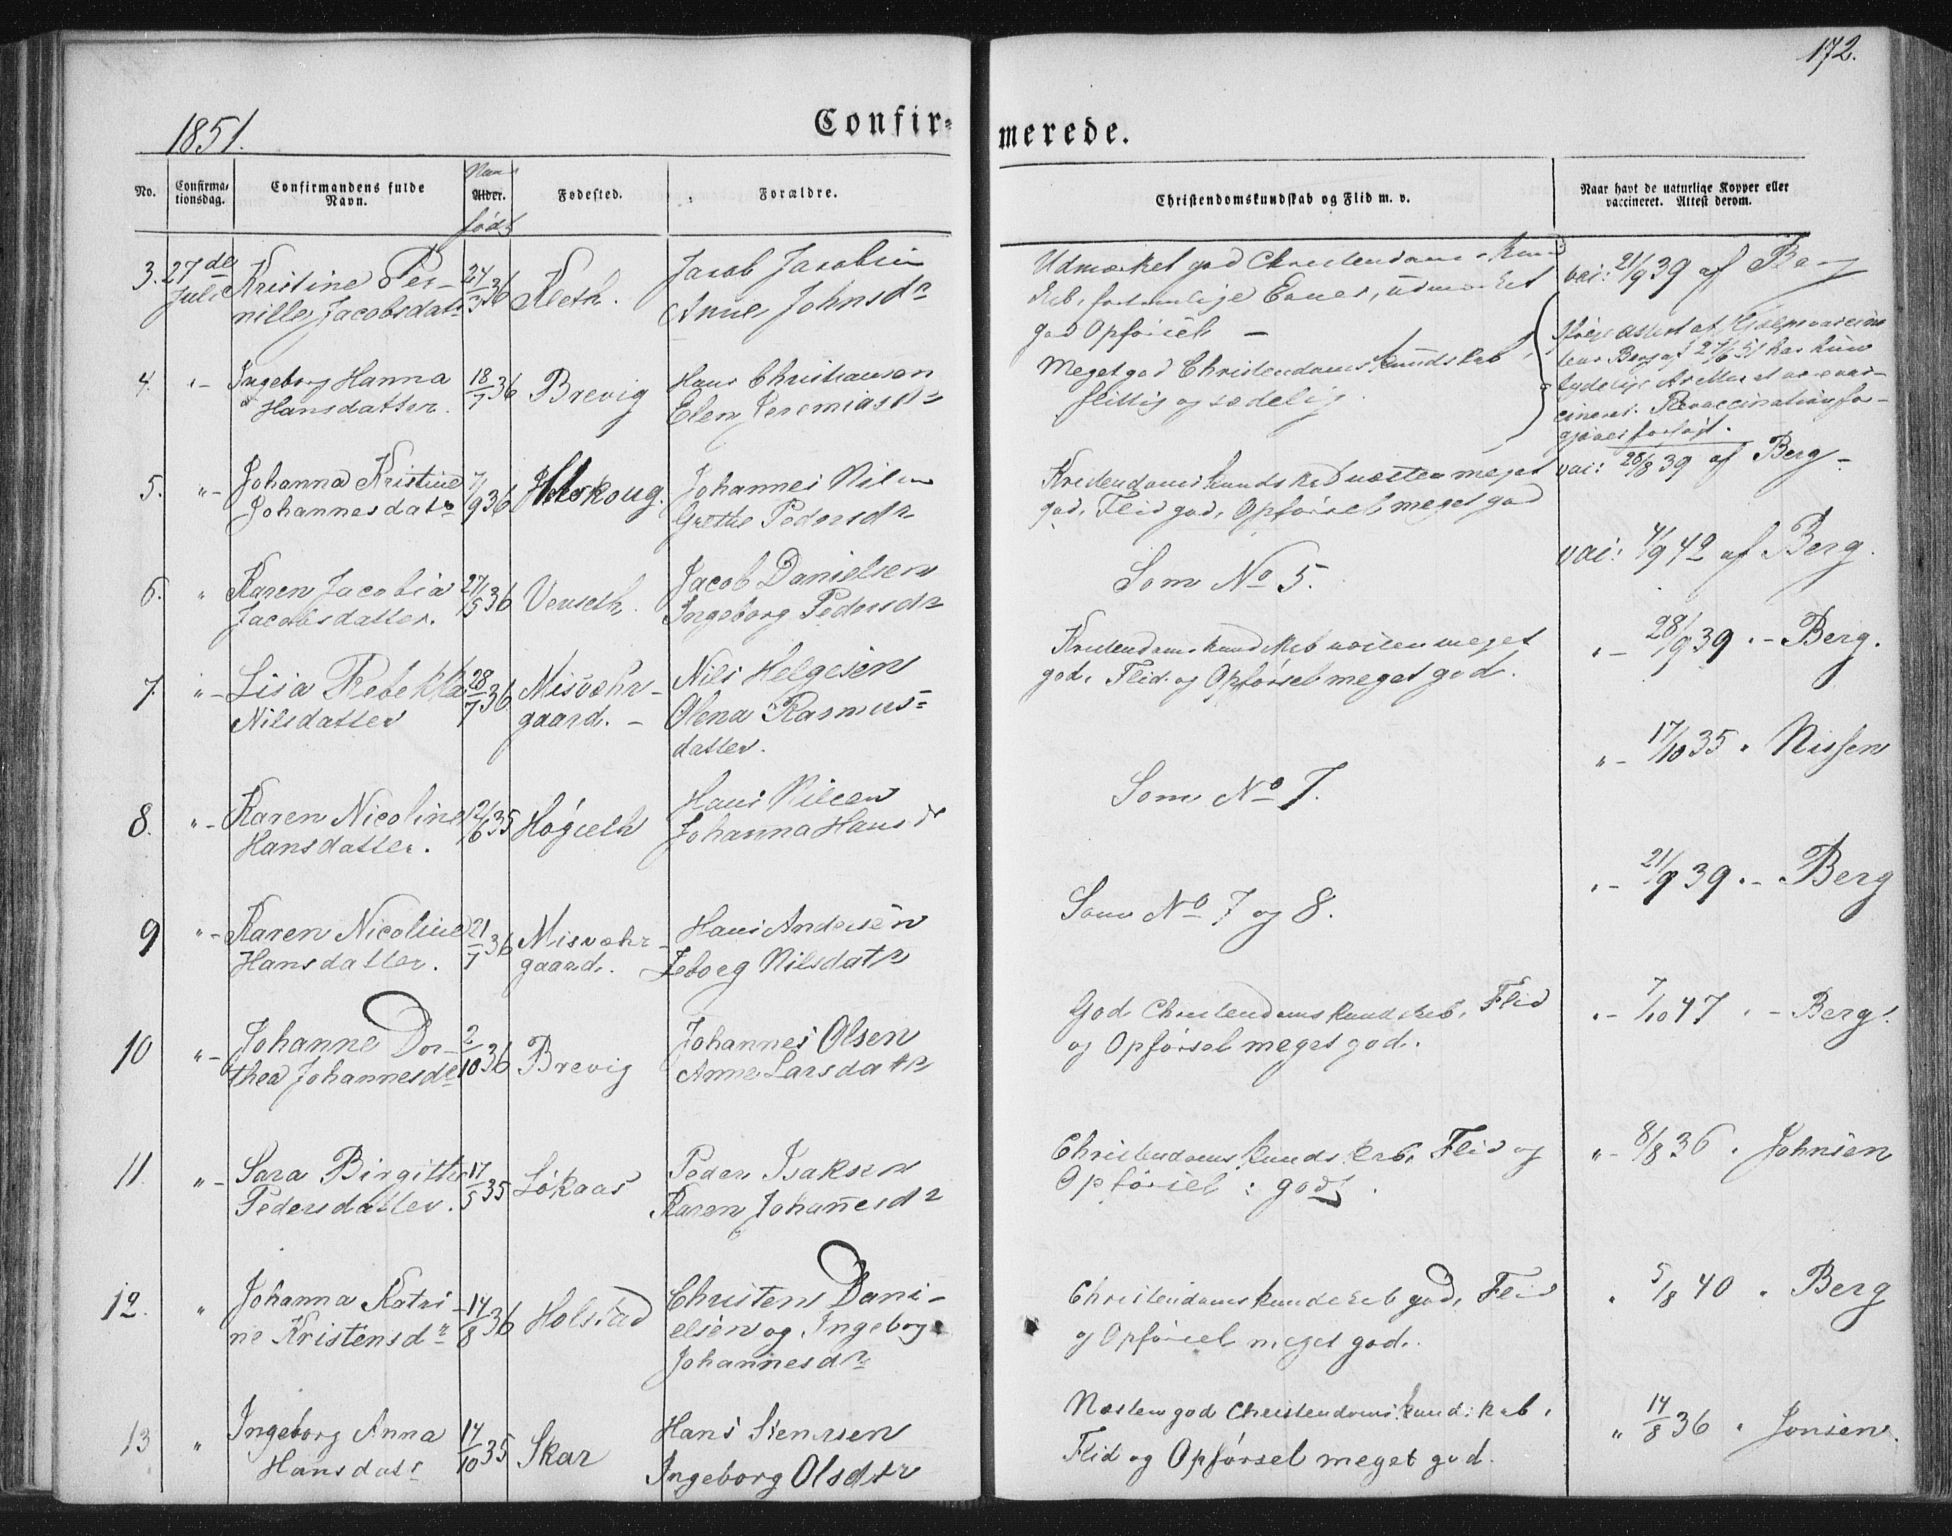 172.
1851.
Confir-
merede.
No.
Confirma-
tionsdag.
Confirmandens fulde
Navn.
Alder.
født
Fødested.
Forældre.
Christendomskundskab og Flid m. v.
Naar havt de naturlige Kopper eller
vaccineret. Attest derom.
3. 27de Juli
Kristine Per-
nille Jacobsdatr
24/3 36
Jacob Jacobsen
Anne Johnsdr
Udmærket god Christendomskund-
skb, fortrinlige Evner, udmærket
god Opførsel —
vac: 21/9 39 af Berg
4. "-
Ingeborg Hanna
Hansdatter.
18/7 36
Brevig
Hans Christiansen
Elen Jeremiasdr
Meget god Christendomskundskab,
flittig og sædelig.
27/6 51 har hun
tydelige
Revaccination fo-
5. "-
Johanna Kristine
Johannesdatr
7/9 36
Johannes Nilsen
Grethe Pedersdr
Kristendomskundskab næsten meget
god, Flid god, Opførsel meget god
vac: 28/8 39 af Berg -
6. "
Karen Jacobia
Jacobsdatter.
27/5 36
Venseth.
Jacob Danielsen
Ingeborg Pedersdr
Som No 5.
vac: 4/9 42 af Berg.
7. "-
Lisa Rebekka
Nilsdatter
28/7 36
Misvæhr-
gaard. -
Nils Helgesen
Olena Rasmus=
datter.
Kristendomskundskab næsten meget
god, Flid og Opførsel meget god.
"- 28/9 39 "- Berg.
8. "-
Karen Nicoline
Hansdatter.
12/6 35
Høgseth
Hans Nilsen
Johanna Hansdr
Som No 7.
"- 17/10 35 " Nissen
9 "-
Karen Nicoline
Hansdatter.
21/7 36
Misvæhr-
gaard.
Hans Andersen
Zeborg Nilsdatr
Som No 7 og 8.
"- 21/9 39 "- Berg
10 "-
Johanne Dor-
thea Johannesdr
2/10 36
Brevig
Johannes Olsen
Anne Larsdatr
God Christendomskundskab, Flid
og Opførsel meget god.
"- 7/10 47 "- Berg.
11. "-
Sara Birgitte
Pedersdatter.
17/5 35
Løkaas
Peder Isaksen
Karen Johannesdr
Christendomskundskab, Flid og
Opførsel: godt.
"- 8/8 36 " Johnsen
12. "
Johanna Katri-
ne Kristensdr
14/8 36
Holstad
Christens Dani-
elsen og Ingeborg
Johannesdr
Christendomskundskab god, Flid
og Opførsel meget god.
" 5/8 40 " Berg
13 "
Ingeborg Anna
Hansdatr
14/10 35
Skar
Hans Stensen
Ingeborg Olsdtr
Næsten god Christendomskundskab,
Flid og Opførsel meget god.
" 14/8 36 " Jonsen.